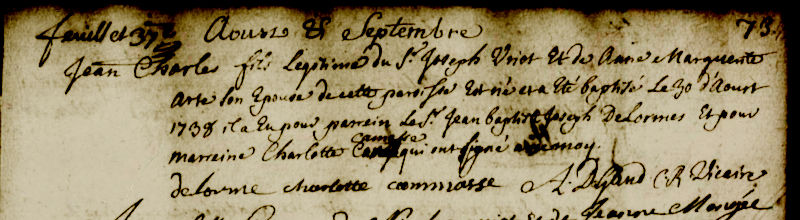 feuillet 37e Aoust & Septembre 73
Jean Charles fils Legitime du Sr. Joseph Uriot Et de Anne Marguerite
Arte Son Epouse de cette paroisse Est né et a Eté baptisé Le 30 d'Aoust
1738 il a Eu pour parrein Le Sr. Jean baptiste Joseph Delormes Et pour
marreine Charlotte Camasse qui ont Signé avec moy.
delorme charlotte cammasse A. CR Vicaire
de Jeanne